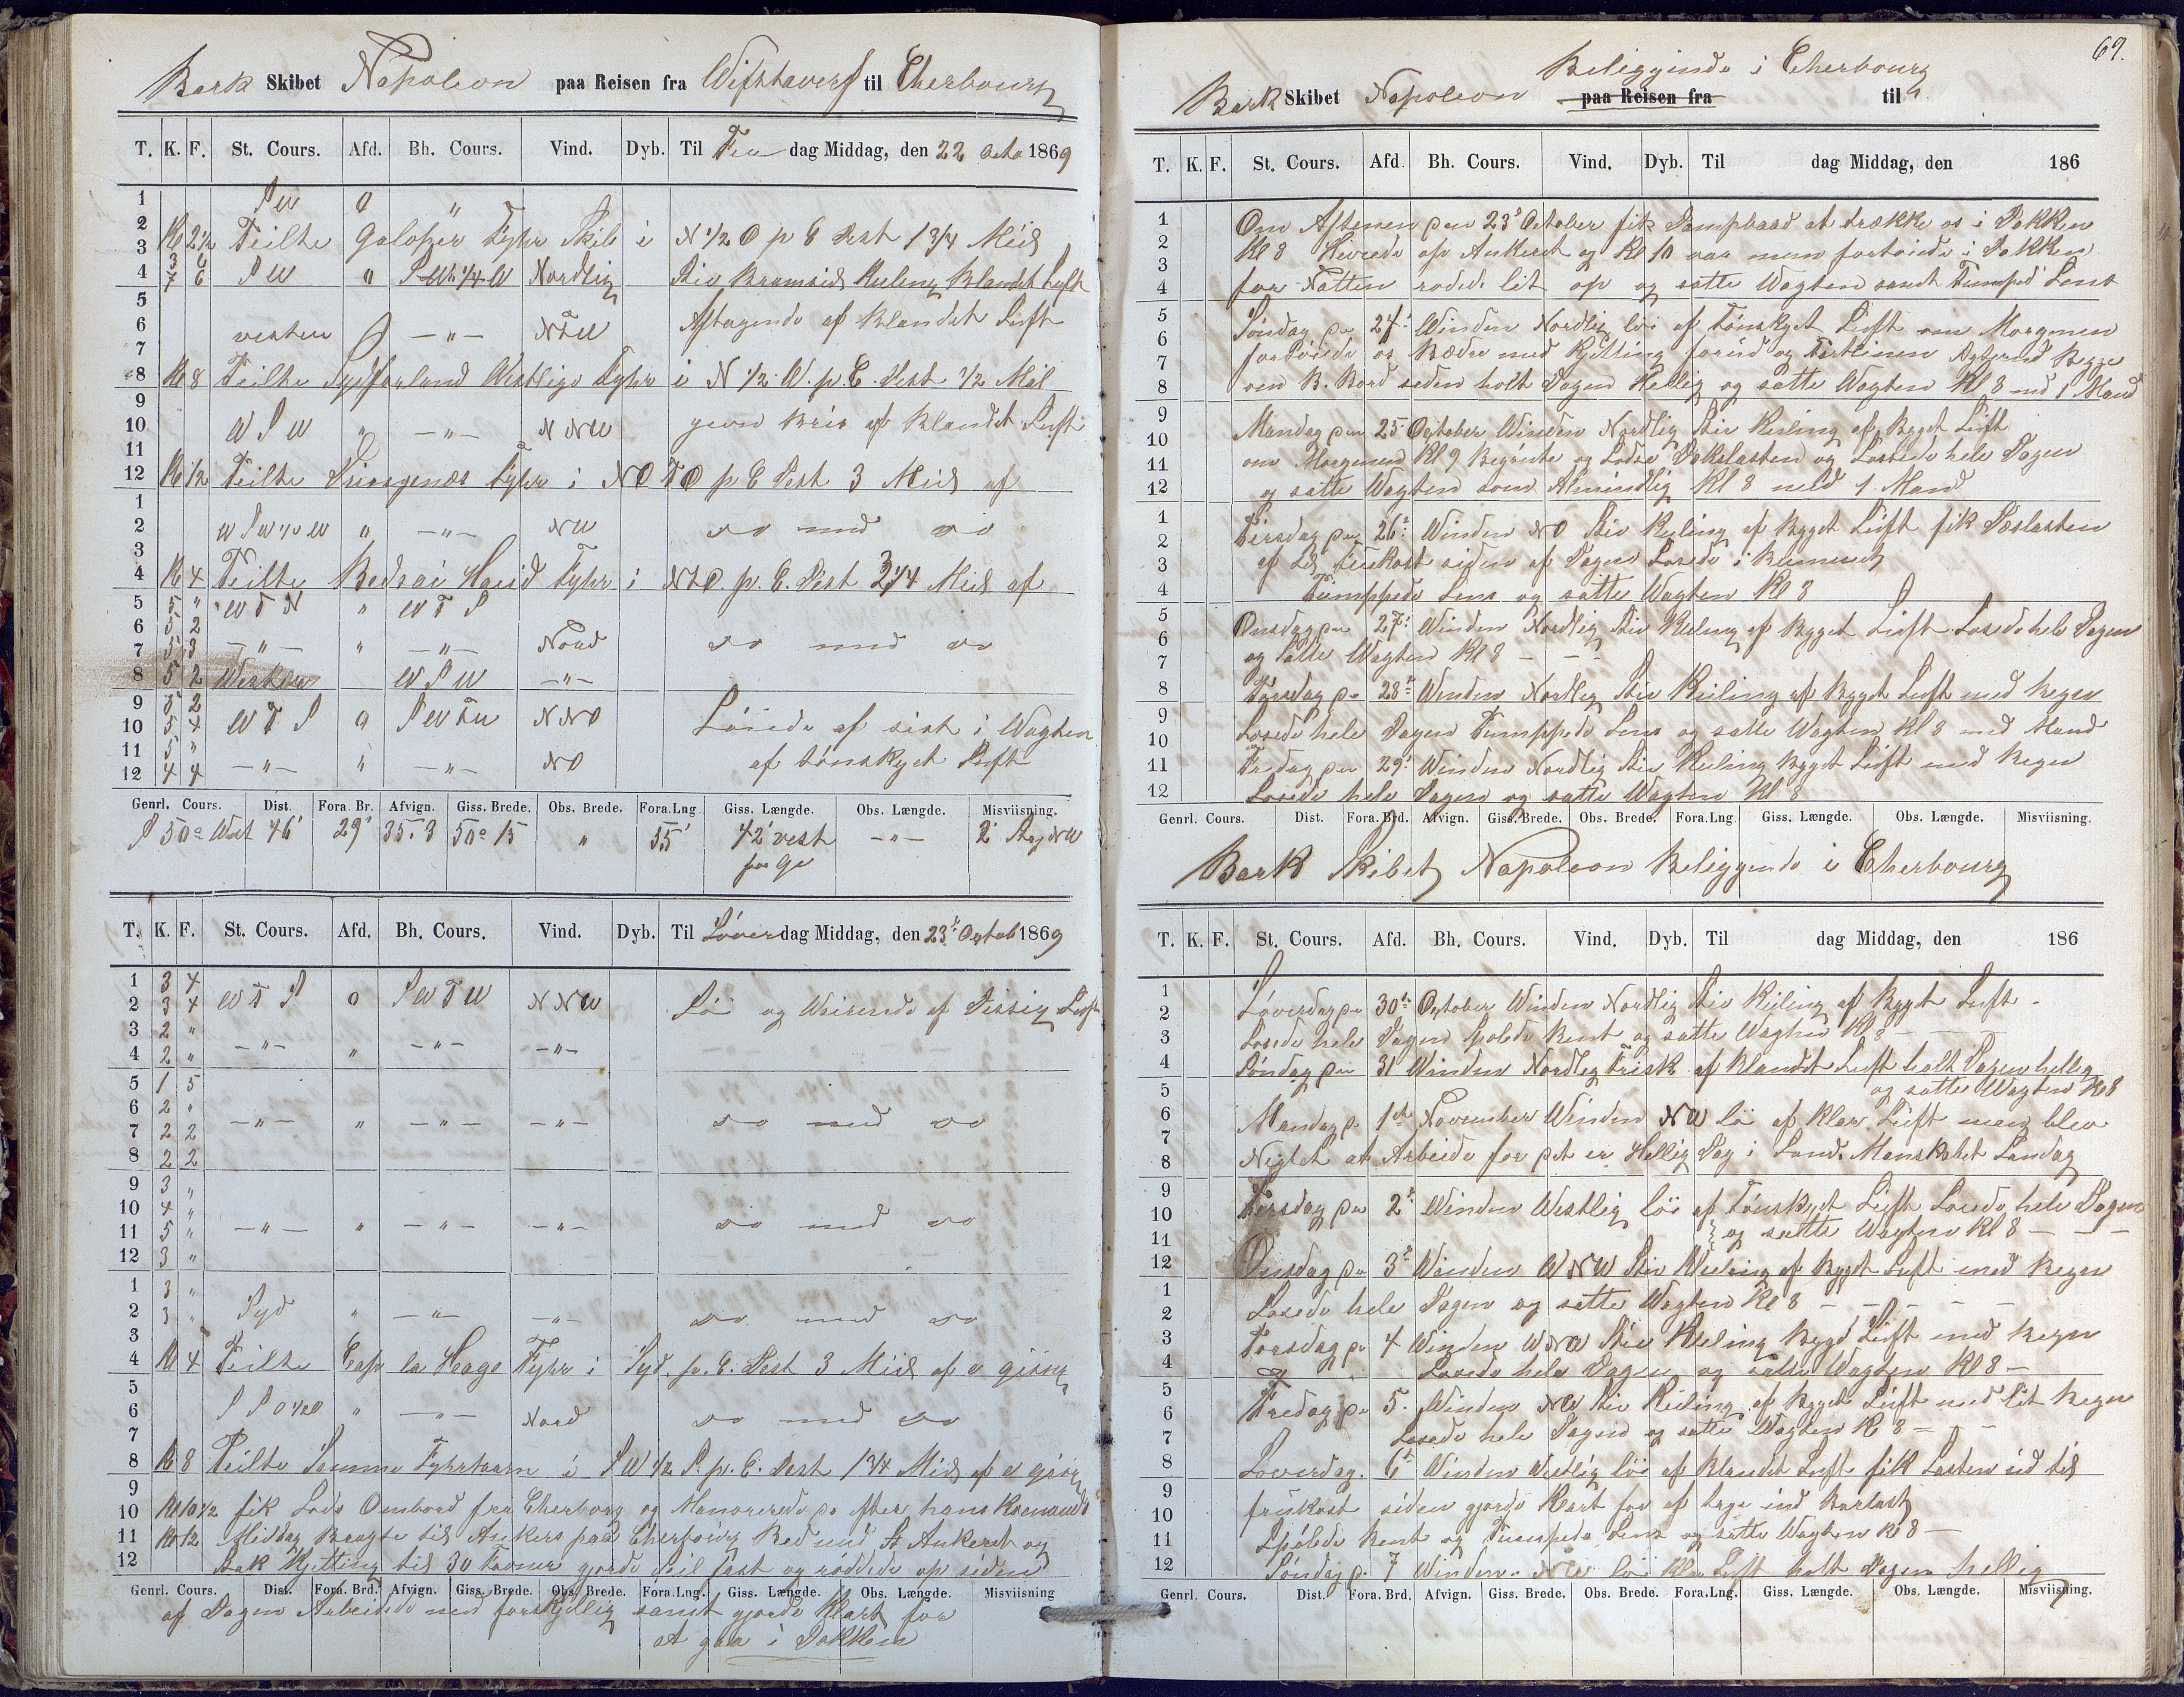 Bark Skibet Napoleon paa Reisen fra Wifstavarf til Cherbourg
T. K. F. St. Cours. Afd. Bh. Cours. Vind. Dyb. Til Fre dag Middag, den 22 Octo 1869
1 SW 0 "
2 Kl 2½ Peilte Galoper Fyhr Skib i N ½ O p C Dist 1 3/4 Miil
3 3 6
4 7 6 SW " Nordlig Stiv Bramseils Kuling Blandet Luft
5
6 vesten " — " — NTW Aftagende af Blandet Luft
7
8 Kl 8 Peilte Sydforland Westlige Fyhr i N ½ W. p. C. Dist ½ Miil
9
10 W S W " — " — N NW jevn Bris af Blandet Luft
11
12 Kl 12 Peilte Fyhr i NO T O p C Dist 3 Miil af
1
2 W S W ½ W " — " — NW do med do
3
4 Kl 4 Peilte Fyhr i NTO. p. C. Dist 2 1/4 Miil af
5 5 " W T N " W T S
6 5 2
7 5 3 — " — " — " — Nord do med do
8 5 2 Westen W S W — " —
9 5 2
10 5 4 W T S 0 SW T W N NO Löiede af sist i Wagten
11 5 "
12 4 4 — " — " — " — NO af tönskyet Luft
Genrl. Cours. Dist. Fora. Br. Afvign. Giss. Brede. Obs. Brede. Fora.Lng Giss. Længde. Obs. Længde. Misviisning.
S 50° West 46' 29' 35.3 50° 15 " 55' 42' vest — " — 2 Streg NW
for Ge
T. K. F. St. Cours. Afd. Bh. Cours. Vind. Dyb. Til Löver dag Middag, den 23 Octob 1869
1 3 4
2 3 4 W T S 0 SW T W N NW Löi og af Dissig Luft
3 2 "
4 2 " — " — " — " — — " —
5 1 5
6 2 "
7 2 2 — " — " — " — — " — do med do
8 2 2
9 3 "
10 4 "
11 5 " — " — " — " — — " — do med do
12 3 "
1 3 "
2 3 " Syd " — " — — " — do med do
3
4 Kl 4 Peilte Cap la Hage Fyhr i Syd. p. C. Dist 3 Miil af
5
6 S S O ½ O " — " — Nord do med do
7
8 Kl 8 Peilte Samme Fyhrtaarn i SW ½ S. p. C. Dist 1 3/4 Miil af
9
10 Kl 10½ fik Lods Ombord fra Cherborg og Manorerede da efter hans
11 Kl 12 Middag Bragte til Ankers paa Cherbourg Red med St Ankeret og
12 Stak Kjetting til 30 Favner gjorde Seil fast og röddede op siden
Genrl. Cours. Dist. Fora. Brd. Afvign. Giss. Brede. Obs. Brede. Fora.Lng. Giss. Længde. Obs. Længde. Misviisning
af Dagen Arbeidede med forskjellig samt gjorde klart for
at gaa i Dokken
69.
Beliggende i Cherbourg
Bark Skibet Napoleon paa Reisen fra til
T. K. F. St. Cours. Afd Bh. Cours. Vind. Dyb. Til dag Middag, den 186
1 Om Aftenen den 23 October fik Dampbaad at trække os i Dokken
2 Kl 8 Hevede op Ankeret og Kl 10 var men fortöiede i Dokken
3
4 for Natten röded lit op og satte Wagten samt Pumped Lens
5 Söndag den 24 Winden Nordlig löi af tönskyet Luft om Morgenen
6 fortöiede os Bædre med Kjetting forud og Agterud Begge
7
8 om B. Bord siden holt Dagen Hellig og satte Wagten Kl 8 med 1 Mand
9 Mandag den 25 October Winden Nordlig Stiv Kuling af Byget Luft
10 om Morgenen Kl 9 Begönte og Losse Dekslasten og Lossede hele Dagen
11
12 og satte Wagten som Almindlig Kl 8 med 1 Mand
1 Tirsdag den 26 Winden NO Stiv Kuling af Bygget Luft fik Dekslasten
2 af til Frukost siden af Dagen Losede i Rummet
3
4 Pumppede Lens og satte Wagten Kl 8
5 Onsdag den 27 Winden Nordlig Stiv Kuling af Bygget Luft Losede hele Dagen
6 og Satte Wagten Kl 8 — — —
7
8 Torsdag de 28 Winden Nordlig Stiv Kuling af Bygget Luft med Regn
9 Losede hele Dagen Pumppede Lens og satte Wagten Kl 8 med Mand
10
11 Fredag den 29 Winden Nordlig Stiv Kuling Bygget Luft med Regn
12 Losede hele Dagen og satte Wagten Kl 8
Genrl. Cours. Dist. Fora. Brd. Afvign. Giss. Brede. Obs. Brede. Fora.Lng. Giss. Længde. Obs. Længde. Misviisning.
Bark Skibet Napoleon Beliggende i Cherbourg
T. K. F. St. Cours. Afd. Bh. Cours. Vind. Dyb. Til dag Middag, den 186
1 Löverdag den 30te October Winden Nordlig Stiv Kuling af Bygget Luft
2
3 Losede hele Dagen spolede Rent og satte Wagten Kl 8
4 Söndag den 31 Winden Nordlig Frisk af Blandet Luft holt Dagen hellig
5 og satte Wagten Kl 8
6 Mandag d. 1ste November Winden NW löi af klar Luft men blev
7
8 Nigtet at Arbeide for det er Hellig Dag i Land. Manskabet Landag
9
10 Tirsdag den 2 Winden Westlig löi af Tönskyet Luft Losede hele Dagen
11 og satte Wagten Kl 8 — — —
12 Onsdag den 3 Winden W NW Stiv Kuling af Bygget Luft med Regn
1
2 Losede hele Dagen og satte Wagten Kl 8 — — — — —
3 Torsdag de 4 Winden W NW Stiv Kuling Bygd Luft med Regn
4 Losede hele Dagen og satte Wagten Kl 8 —
5
6 Fredag de 5. Winden NW Stiv Kuling af Bygget Luft med lit Regn
7 Losede hele Dagen og satte Wagten Kl 8 — — —
8 Löverdag. 6te Winden Westlig löi af Blandet Luft fik Lasten ud til
9
10 frukost siden gjorde klart for at tage ind Barlast
11 Spölede Rent og Pumpede Lens og satte Wagten Kl 8 —
12 Söndag d. 7 Winden NW löi klar Luft holt Dagen hellig
Genrl. Cours. Dist. Fora. Brd. Afvign. Giss. Brede. Obs. Brede. Fora.Lng. Giss. Længde. Obs. Længde. Misviisning.